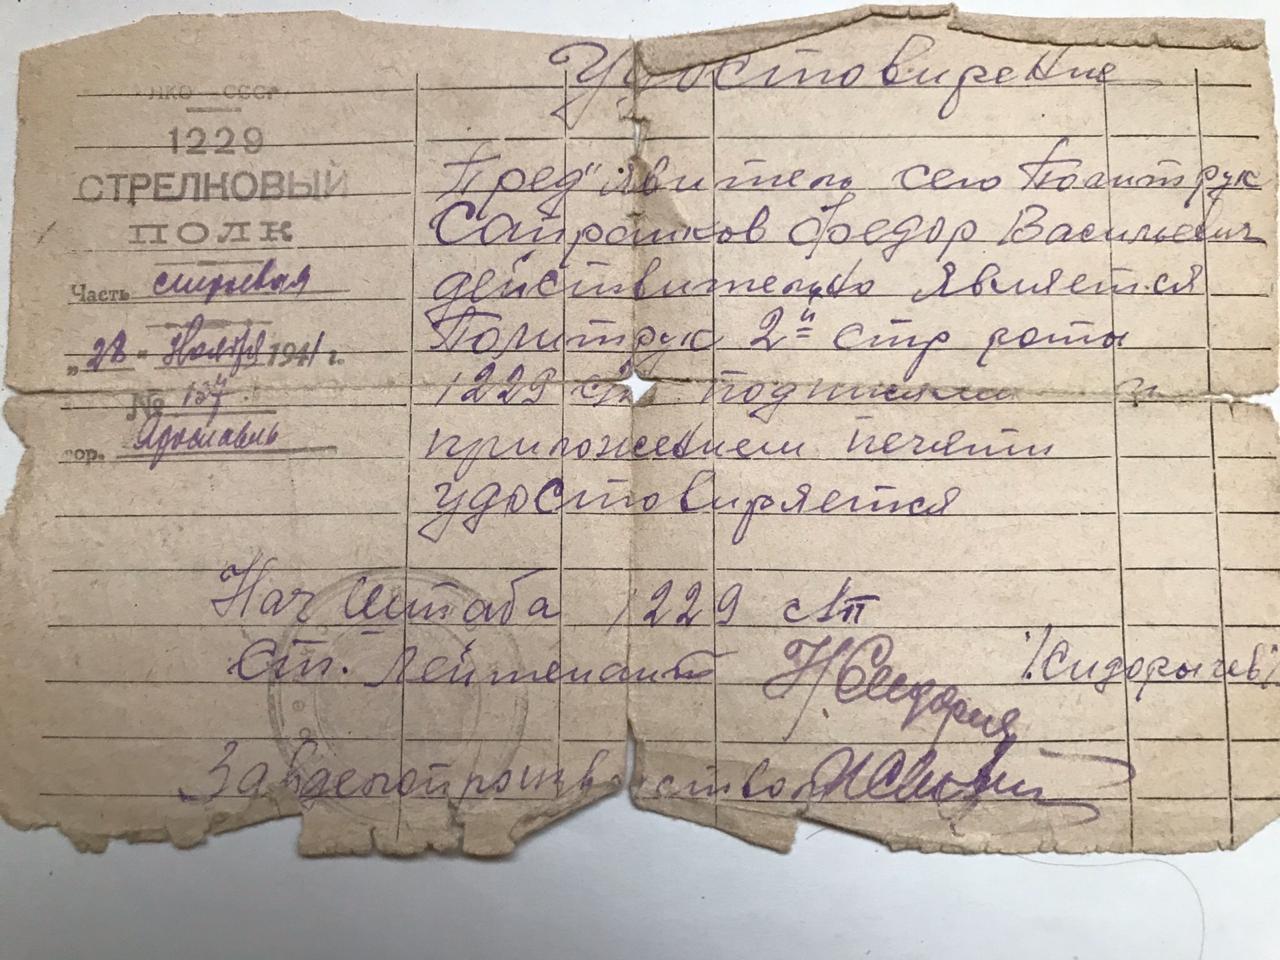 Удостовирение
НКО СССР
1229
СТРЕЛКОВЫЙ
ПОЛК
Часть строевая
„28" Ноября 1941 г.
№ 137
гор. Ярославль
Пред"явитель сего Политрук
Фредор Васильевич
действительно является
Политрук 2й стр роты
1229 сп
приложением печяти
удостовиряется
Нач Штаба 1229 сп
Ст. Лейтенант /Сидорычев/
Завделопроизводством